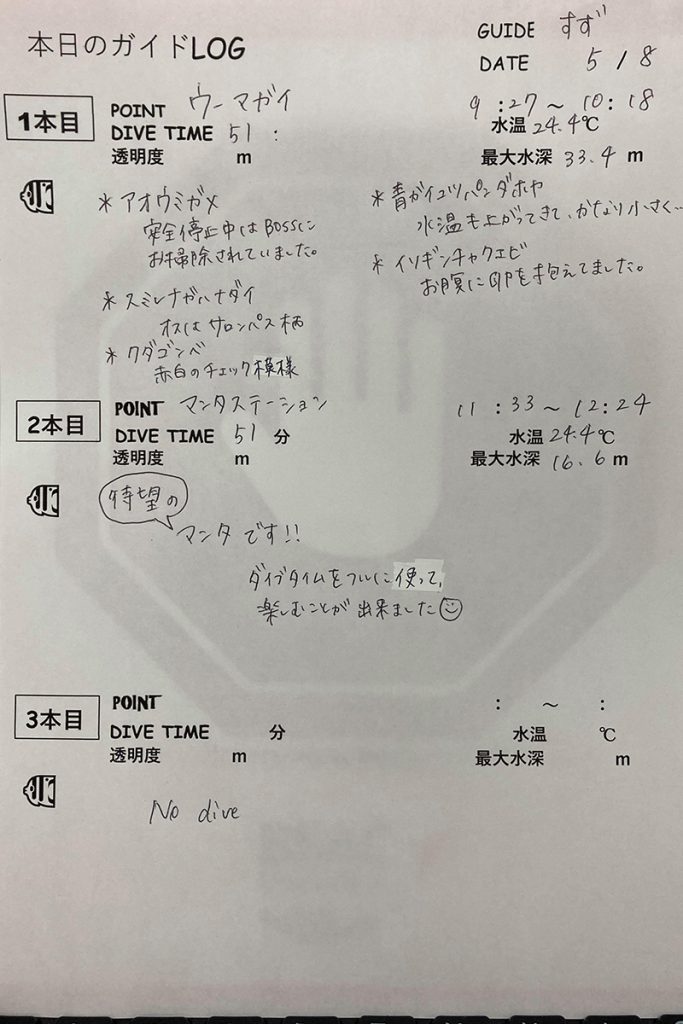 本日のガイドLOG
GUIDE すず
DATE 5/8
1本目
POINT ウーマガイ
9:27～10:18
DIVE TIME 51:
水温24.4℃
透明度 m
最大水深 33.4 m
*アオウミガメ
安全停止中はBOSSに
お掃除されていました。
*スミレナガハナダイ
オスはサロンパス柄
*クダゴンベ
赤白のチェック模様
*青ガイコツパンダホヤ
水温も上がってきて、かなり小さく…
*イソギンチャクエビ
お腹に卵を抱えてました。
2本目
POINT マンタステーション
11:33～12:24
DIVE TIME 51 分
水温24.4℃
透明度 m
最大水深 16.6 m
待望の
マンタです!!
ダイブタイムをフルに使って、
楽しむことが出来ました
3本目
POINT
: ～ :
DIVE TIME 分
水温 ℃
透明度 m
最大水深 m
No dive